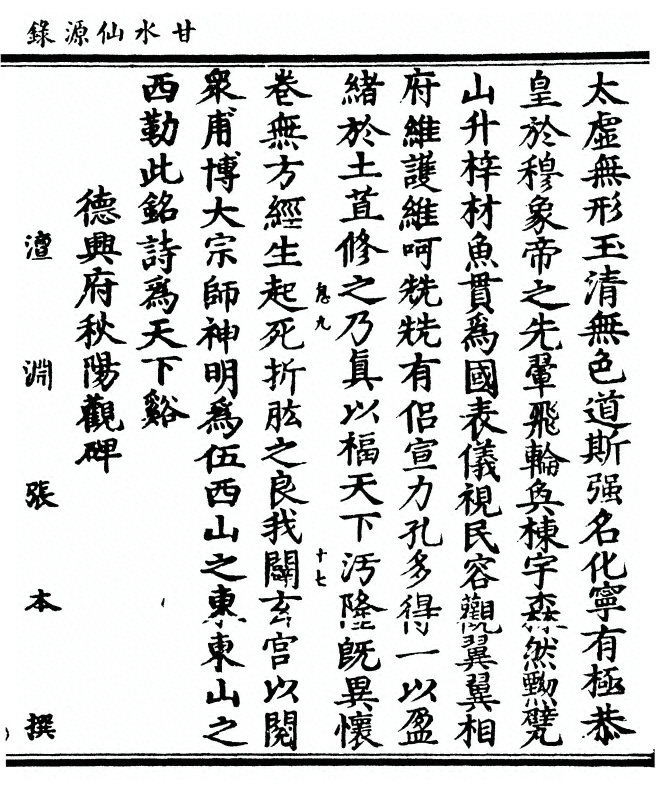 甘水仙源錄
太虛無形玉清無色道斯强名化寧有極恭
皇於穆象帝之先翬飛輪奐棟宇森然勲甓
山升梓材魚貫爲國表儀視民容觀翼翼相
府維護維呵兟兟有侶宣力孔多得一以盈
緒於土苴修之乃眞以福天下汚隆旣異懷
卷九
十七
卷無方經生起死折肱之良我闢玄宮以閱
衆甫博大宗師神明爲伍西山之東東山之
西勒此銘詩爲天下谿
德興府秋陽觀碑
澶淵張本撰